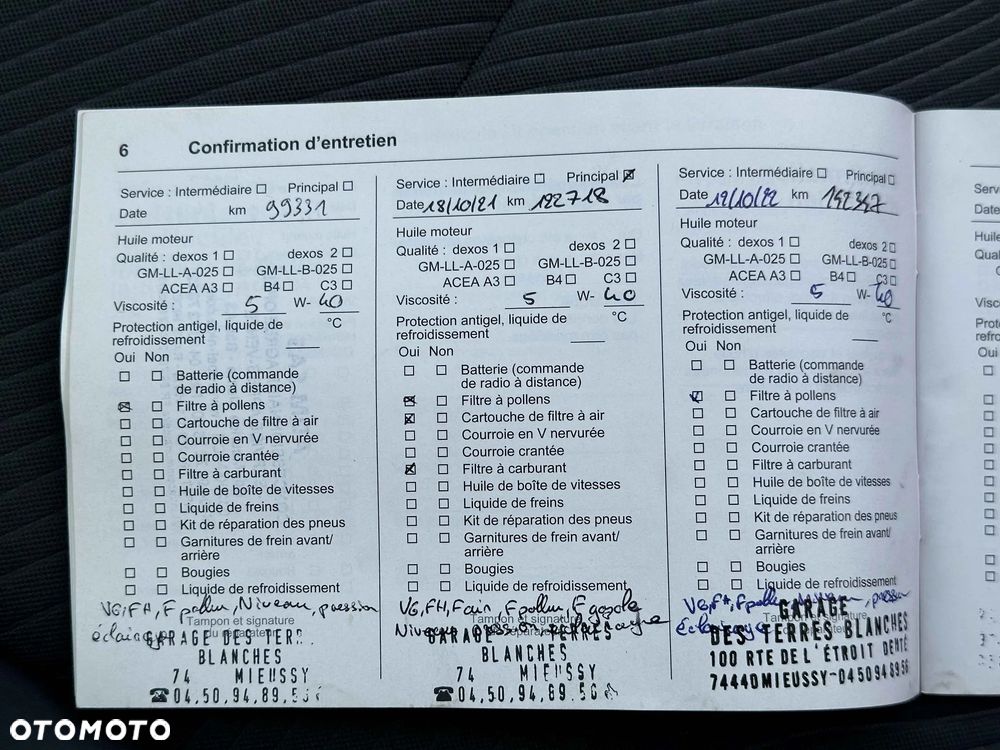 6 Confirmation d'entretien
Service : Intermédiaire ☐ Principal ☐
Date km 99331
Huile moteur
Qualité : dexos 1 ☐ dexos 2 ☐
GM-LL-A-025 ☐ GM-LL-B-025 ☐
ACEA A3 ☐ B4 ☐ C3 ☐
Viscosité : 5 W- 40
Protection antigel, liquide de
refroidissement °C
Oui Non
☐ ☐ Batterie (commande
de radio à distance)
☒ ☐ Filtre à pollens
☐ ☐ Cartouche de filtre à air
☐ ☐ Courroie en V nervurée
☐ ☐ Courroie crantée
☐ ☐ Filtre à carburant
☐ ☐ Huile de boîte de vitesses
☐ ☐ Liquide de freins
☐ ☐ Kit de réparation des pneus
☐ ☐ Garnitures de frein avant/
arrière
☐ ☐ Bougies
☐ ☐ Liquide de refroidissement
VG, FH, F pollen, Niveau, pression
éclairage
Tampon et signature
GARAGE DES TERR
BLANCHES
74 MIEUSSY
☎04.50.94.89.56
Service : Intermédiaire ☐ Principal ☒
Date 18/10/21 km 122718
Huile moteur
Qualité : dexos 1 ☐ dexos 2 ☐
GM-LL-A-025 ☐ GM-LL-B-025 ☐
ACEA A3 ☐ B4 ☐ C3 ☐
Viscosité : 5 W- 40
Protection antigel, liquide de
refroidissement °C
Oui Non
☐ ☐ Batterie (commande
de radio à distance)
☒ ☐ Filtre à pollens
☒ ☐ Cartouche de filtre à air
☐ ☐ Courroie en V nervurée
☐ ☐ Courroie crantée
☒ ☐ Filtre à carburant
☐ ☐ Huile de boîte de vitesses
☐ ☐ Liquide de freins
☐ ☐ Kit de réparation des pneus
☐ ☐ Garnitures de frein avant/
arrière
☐ ☐ Bougies
☐ ☐ Liquide de refroidissement
VG, FH, F air, F pollen, F gazole
Niveau pression éclairage
Tampon et signature
GARAGE DES TERRES
BLANCHES
74 MIEUSSY
☎04.50.94.89.56
Service : Intermédiaire ☐ Principal ☐
Date 12/10/22 km 142347
Huile moteur
Qualité : dexos 1 ☐ dexos 2 ☐
GM-LL-A-025 ☐ GM-LL-B-025 ☐
ACEA A3 ☐ B4 ☐ C3 ☐
Viscosité : 5 W- 40
Protection antigel, liquide de
refroidissement °C
Oui Non
☐ ☐ Batterie (commande
de radio à distance)
☑ ☐ Filtre à pollens
☐ ☐ Cartouche de filtre à air
☐ ☐ Courroie en V nervurée
☐ ☐ Courroie crantée
☐ ☐ Filtre à carburant
☐ ☐ Huile de boîte de vitesses
☐ ☐ Liquide de freins
☐ ☐ Kit de réparation des pneus
☐ ☐ Garnitures de frein avant/
arrière
☐ ☐ Bougies
☐ ☐ Liquide de refroidissement
VG, FH, F pollen
éclairage
Tampon et signature
GARAGE
DES TERRES BLANCHES
100 RTE DE L'ÉTROIT DENTÉ
74440 MIEUSSY-0450948956
OTOMOTO